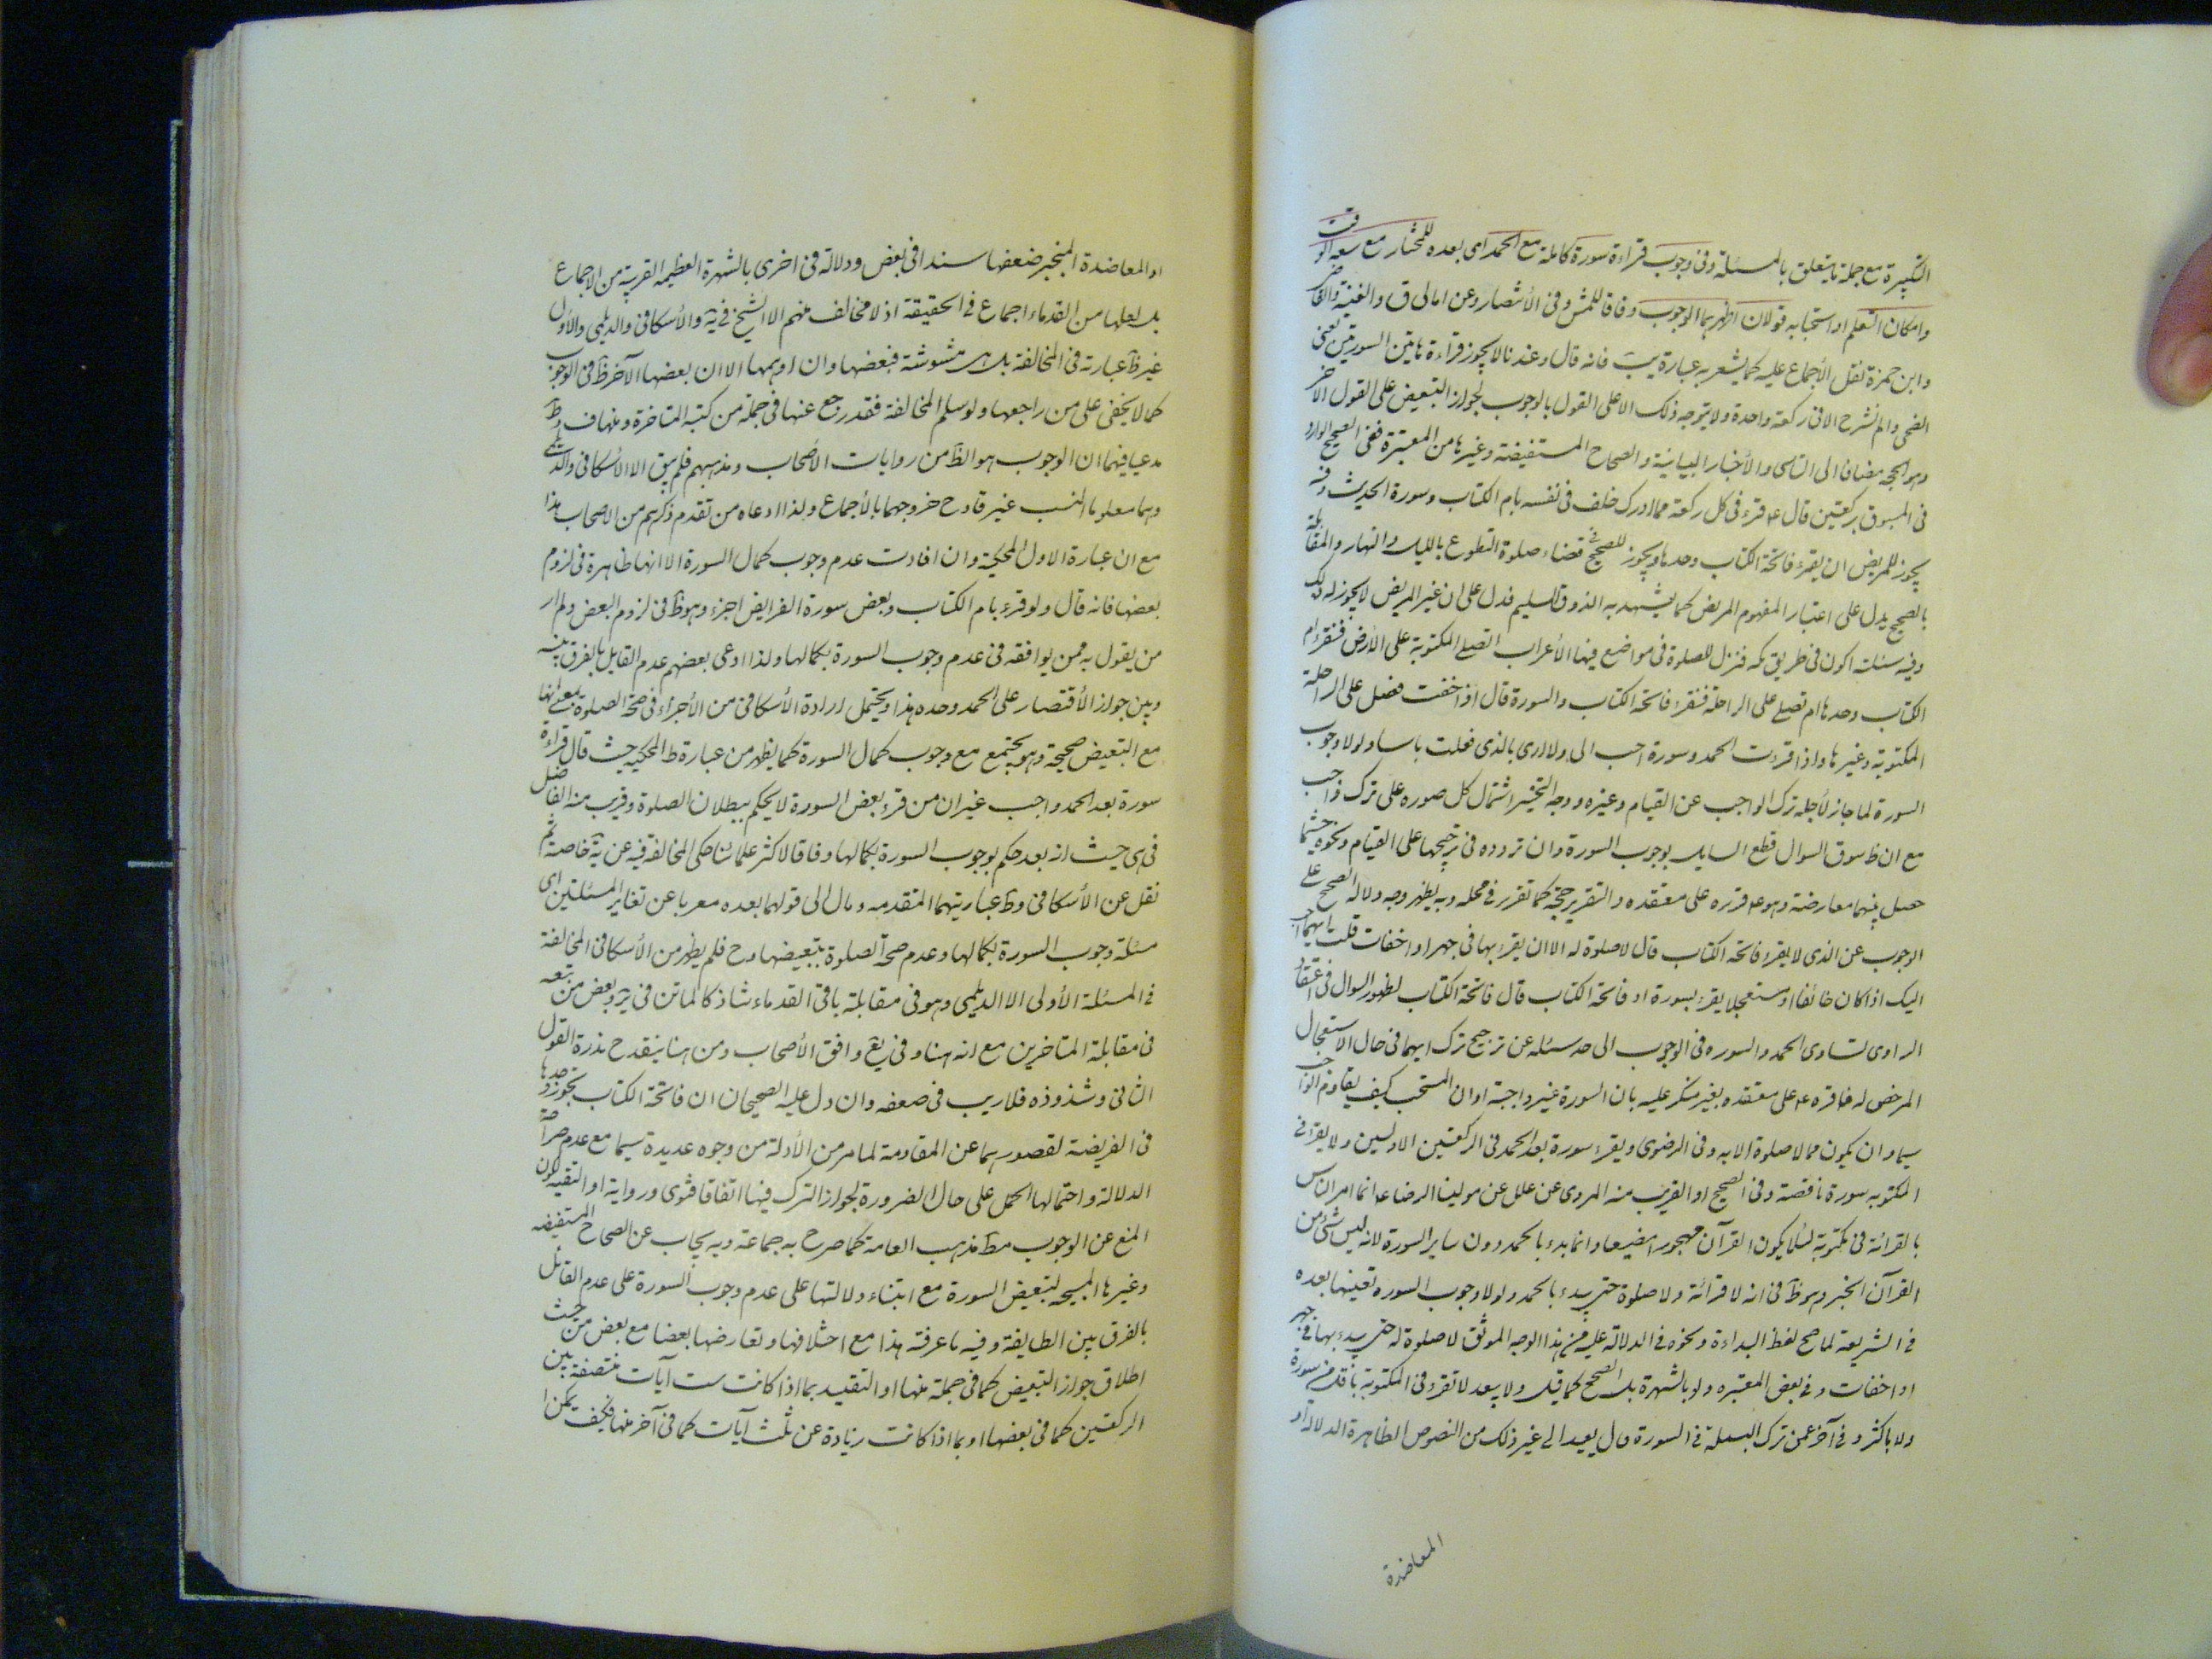 التكبيرة مع جملة ما يتعلق بالمسئلة وفى وجوب قراءة سورة كاملة مع الحمد اى بعده للمختار مع سعه الوقت
وامكان التعلم او استحبابه قولان اظهرهما الوجوب وفاقا للمشهور وفى الأنتصار وعن امالى ق والغنية والقاضى
وابن حمزة نقل الأجماع عليه كما يشعر به عبارة يب فانه قال وعندنا لا يجوز قراءة هاتين السورتين يعنى
الضحى والم نشرح الا فى ركعة واحدة ولا يتوجه ذلك الا على القول بالوجوب لجواز التبعيض على القول الآخر
وهو الحجه مضافا الى التاسى والأخبار البيانية والصحاح المستفيضة وغيرها من المعتبرة ففى الصحيح الوارد
فى المسبوق بركعتين قال ع قرء فى كل ركعة مما ادرك خلف فى نفسه بام الكتاب وسورة الحديث وفيه
يجوز للمريض ان يقرء فاتحة الكتاب وحدها ويجوز للصحيح فى قضاء صلوة التطوع بالليل والنهار والمقابلة
بالصحيح يدل على اعتبار المفهوم المريض كما يشهد به الذوق السليم فدل على ان غير المريض لا يجوز له ذلك
وفيه سئلته اكون فى طريق مكه فننزل للصلوة فى مواضع فيها الأعراب انصلى المكتوبة على الأرض فنقرء ام
الكتاب وحدها ام نصلى على الراحلة فنقرء فاتحة الكتاب والسورة قال اذا خفت فصل على الراحلة
المكتوبة وغيرها واذا قرءت الحمد وسورة احب الى ولا ارى بالذى فعلت باسا ولولا وجوب
السورة لما جاز لأجله ترك الواجب عن القيام وغيره ووجه التخيير اشتمال كل صوره على ترك واجب
مع ان ظ سوق السوال قطع السايل بوجوب السورة وان تردده فى ترجيحها على القيام ونحوه حيثما
حصل بينهما معارضة وهو ع قرره على معتقده والتقرير حجة كما تقرر فى محله وبه يظهر وجه دلالة الصحيح على
الوجوب عن الذى لا يقرء فاتحة الكتاب قال لا صلوة له الا ان يقرء بها فى جهر او اخفات قلت ايهما احب
اليك اذا كان خائفا او مستعجلا يقرء بسورة او فاتحة الكتاب قال فاتحة الكتاب لظهور السوال فى اعتقاد
الراوى تساوى الحمد والسوره فى الوجوب الى حد سئله عن ترجيح ترك ايهما فى حال الاستعجال
المرخص له فاقره ع على معتقده بغير منكر عليه بان السورة غير واجبة اوان المستحب كيف يقاوم الواجب
سيما وان يكون مما لا صلوة الا به وفى الرضوى ويقرء سورة بعد الحمد فى الركعتين الاوليين ولا يقرء فى
المكتوبه سورة ناقصة وفى الصحيح او القريب منه المروى عن علل عن مولينا الرضا ع انما امر الناس
بالقرائة فى مكتوبة لئلا يكون القرآن مهجورا مضيعا وانما بدء بالحمد دون ساير السورة لانه ليس شئ من
القرآن الخبر وهو ظ فى انه لا قرائة ولا صلوة حتى يبدء بالحمد ولولا وجوب السوره تعينها بعده
فى الشريعة لما صح لفظ البداءة ونحوه فى الدلالة عليه من هذا الوجه الموثق لا صلوة له حتى يبدء بها فى جهر
او اخفات وفى بعض المعتبره ولو بالشهرة بل الصحيح كما قيل ولا يبعد لا تقرء فى المكتوبة باقل من سورة
ولا باكثر وفى آخر عمن ترك البسملة فى السورة قال يعيد الى غير ذلك من النصوص الظاهرة الدلالة او
المعاضدة
او المعاضدة المنجبر ضعفها سندا فى بعض ودلالة فى اخرى بالشهرة العظيمه القريبة من الاجماع
بل لعلها من القدماء اجماع فى الحقيقة اذ لا مخالف منهم الا الشيخ فى ية والأسكافى والديلمى والأول
غير ظ عبارته فى المخالفة بل هى مشوشة فبعضها وان اوهمها الا ان بعضها الآخر ظ فى الوجوب
كما لا يخفى على من راجعها ولو سلم المخالفة فقد رجع عنها فى جملة من كتبه المتاخرة ومنها ف وط
مدعيا فيهما ان الوجوب هو الظ من روايات الأصحاب ومذهبهم فلم يبق الا الأسكافى والديلمى
وهما معلوما النسب غير قادح خروجهما بالأجماع ولذا ادعاه من تقدم ذكرهم من الاصحاب هذا
مع ان عبارة الاول المحكية وان افادت عدم وجوب كمال السورة الا انها ظاهرة فى لزوم
بعضها فانه قال ولو قرء بام الكتاب وبعض سورة الفرايض اجزء وهو ظ فى لزوم البعض ولم ار
من يقول به ممن يوافقه فى عدم وجوب السورة بكمالها ولذا ادعى بعضهم عدم القايل بالفرق بينه
وبين جواز الأقتصار على الحمد وحده هذا ويحتمل ارادة الأسكافى من الأجزاء فى صحة الصلوة بمعنى انها
مع التبعيض صحيحة وهو يجتمع مع وجوب كمال السورة كما يظهر من عبارة ط المحكيه حيث قال قراءة
سورة بعد الحمد واجب غير ان من قرء بعض السورة لا يحكم ببطلان الصلوة وقريب منه الفاضل
فى هى حيث انه بعد حكم بوجوب السورة بكمالها وفاقا لاكثر علمائنا حكى المخالفة فيه عن ية خاصة ثم
نقل عن الأسكافى وط عبارتيهما المتقدمه ومال الى قولهما بعده معربا عن تغاير المسئلتين اى
مسئلة وجوب السورة بكمالها وعدم صحة الصلوة بتبعيضها وح فلم يظهر من الأسكافى المخالفة
فى المسئلة الأولى الا الديلمى وهو فى مقابلة باقى القدماء شاذ كالماتن فى ير وبعض من تبعه
فى مقابلة المتاخرين مع انه هنا وفى يع وافق الأصحاب ومن هنا ينقدح ندرة القول
الثانى وشذوذه فلا ريب فى ضعفه وان دل عليه الصحيحان ان فاتحة الكتاب يجوز وحدها
فى الفريضة لقصورهما عن المقاومة لما مر من الأدلة من وجوه عديدة سيما مع عدم صراحة
الدلالة واحتمالها الحمل على حال الضرورة لجواز الترك فيها اتفاقا فتوى ورواية او التقية لان
المنع عن الوجوب مط مذهب العامة كما صرح به جماعة وبه يجاب عن الصحاح المستفيضه
وغيرها المبيحه لتبعيض السورة مع ابتناء دلالتها على عدم وجوب السورة على عدم القائل
بالفرق بين الطايفة وفيه ما عرفته هذا مع اختلافها وتعارضها بعضا مع بعض من حيث
اطلاق جواز التبعيض كما فى جملة منها او التقييد بما اذا كانت ست آيات منتصفة بين
الركعتين كما فى بعضها او بما اذا كانت زيادة عن ثلث آيات كما فى آخر منها فكيف يمكن